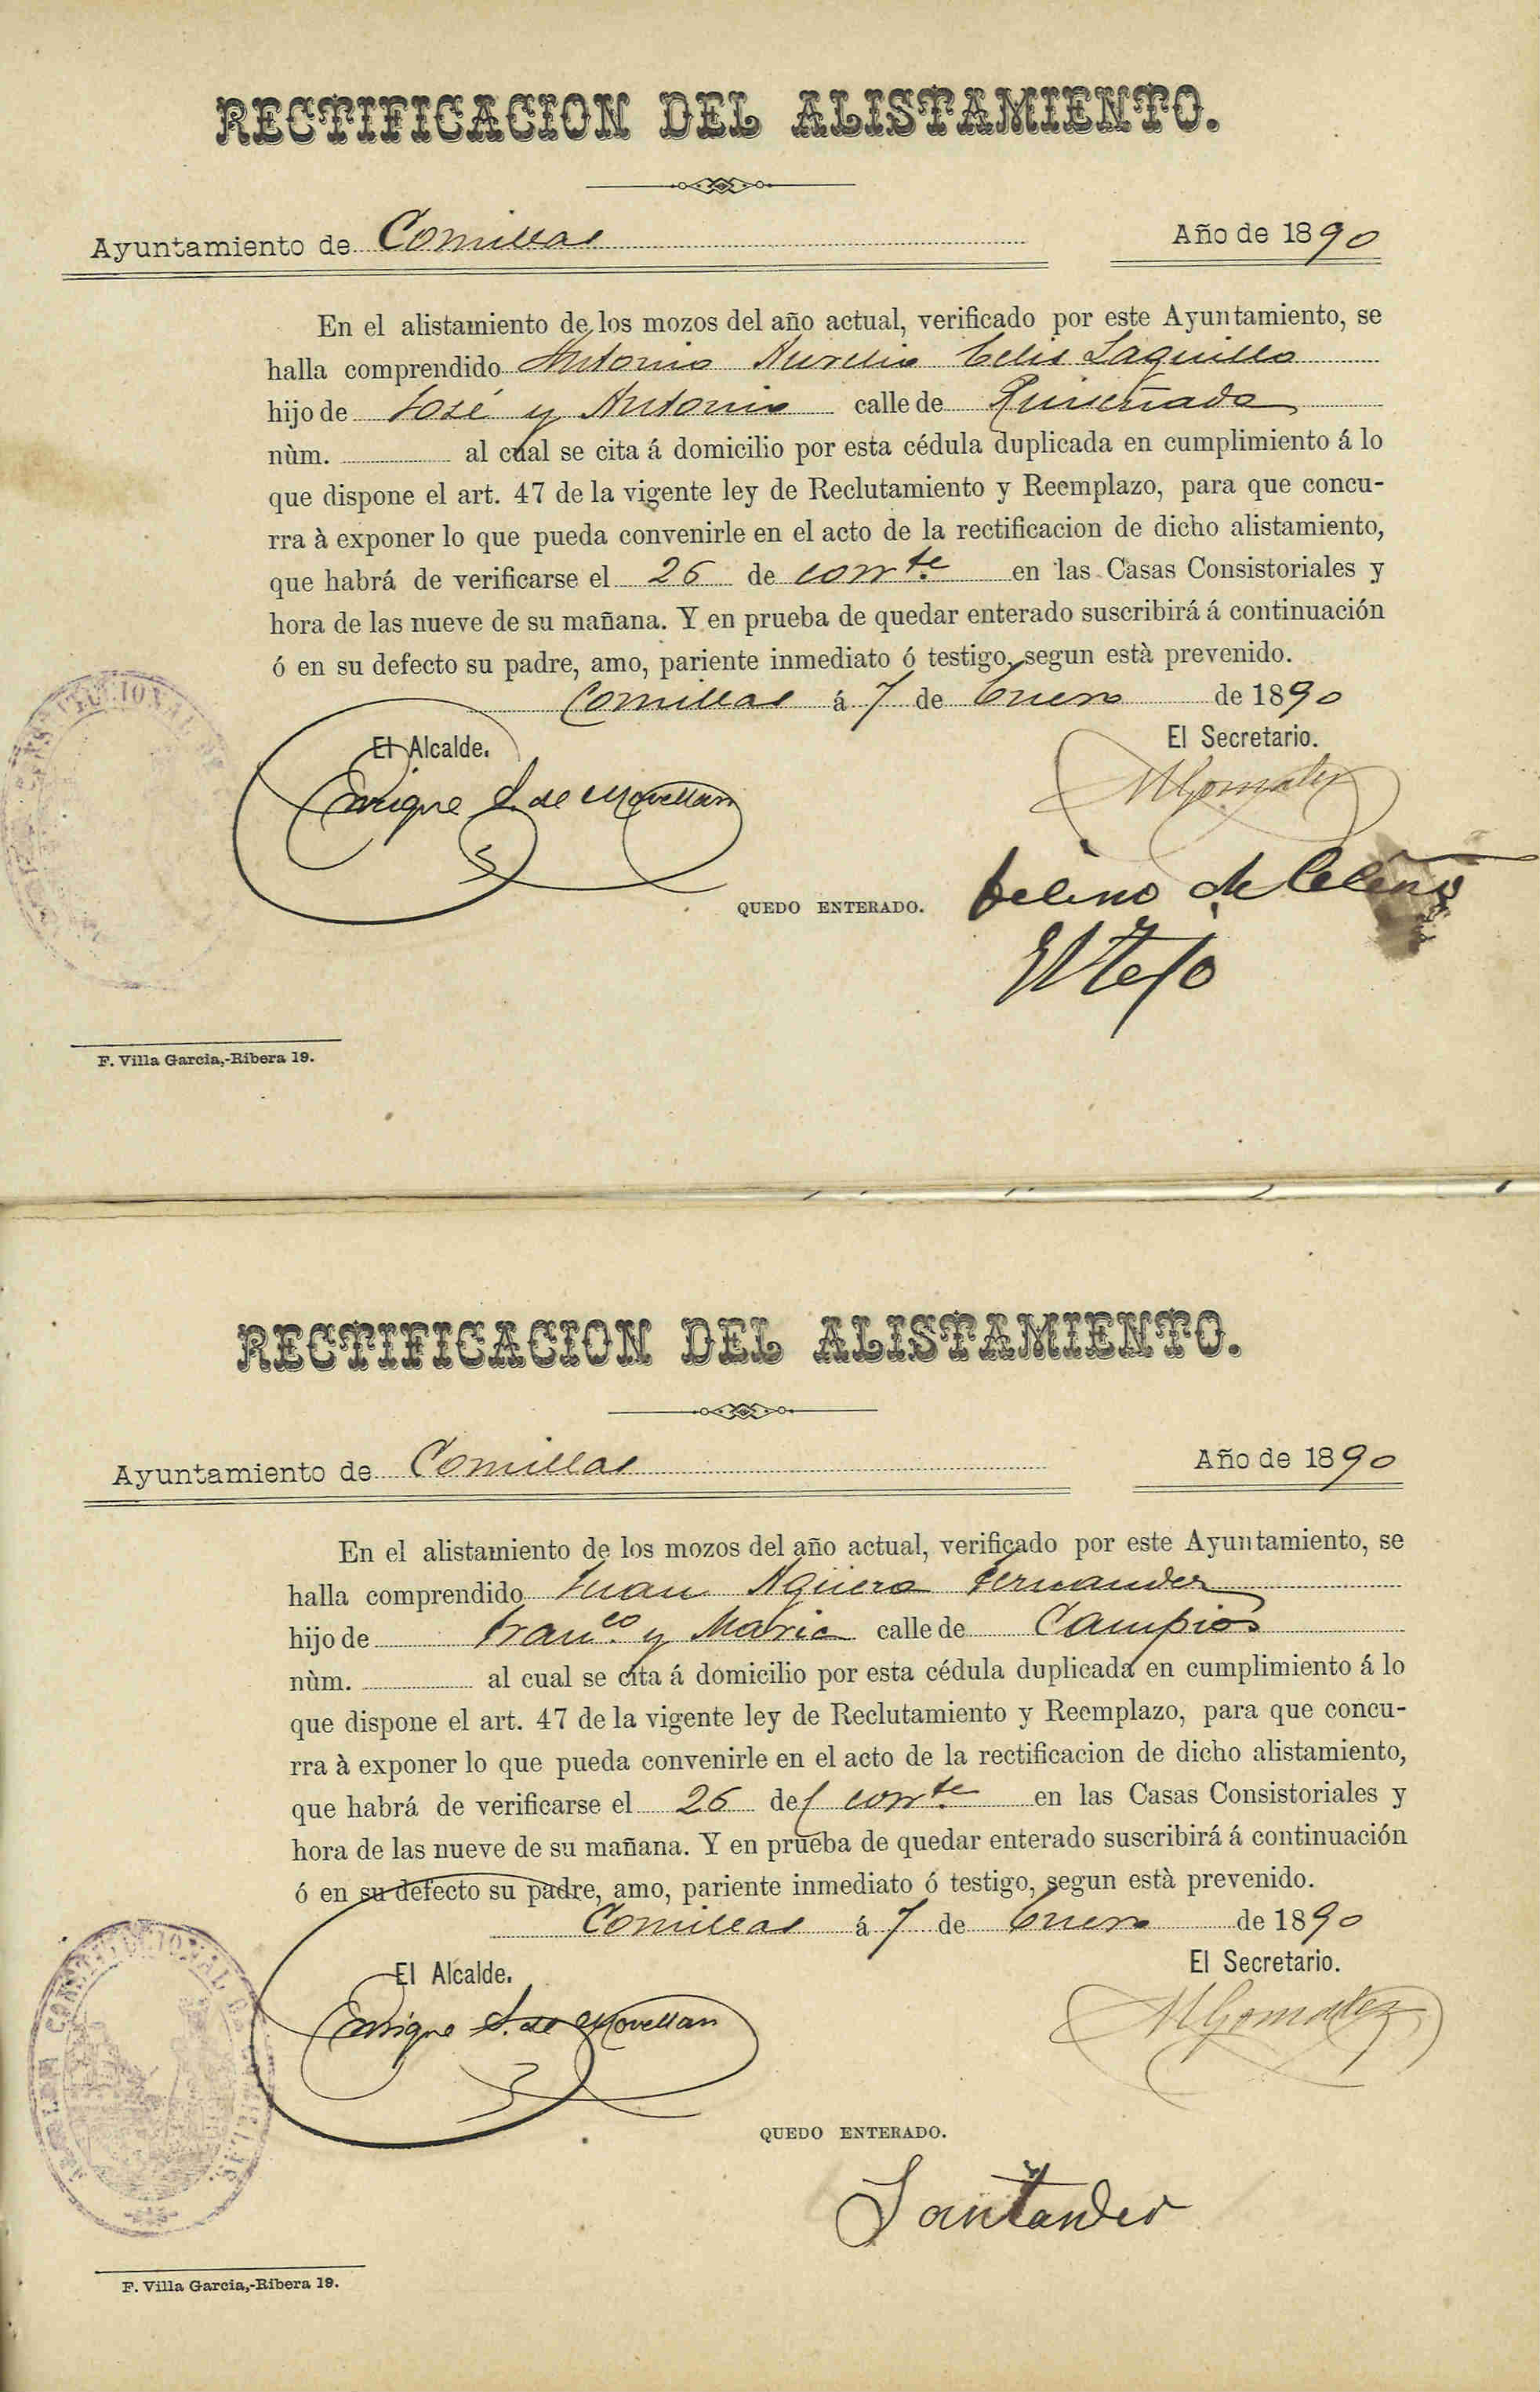 RECTIFICACION DEL ALISTAMIENTO.
Ayuntamiento de Comillas Año de 1890
En el alistamiento de los mozos del año actual, verificado por este Ayuntamiento, se
halla comprendido Antonio Aurelio Celis Laguillo
hijo de José y Antonia calle de Ruiseñada
nùm. al cual se cita á domicilio por esta cédula duplicada en cumplimiento á lo
que dispone el art. 47 de la vigente ley de Reclutamiento y Reemplazo, para que concu-
rra à exponer lo que pueda convenirle en el acto de la rectificacion de dicho alistamiento,
que habrá de verificarse el 26 de corrte. en las Casas Consistoriales y
hora de las nueve de su mañana. Y en prueba de quedar enterado suscribirá á continuación
ó en su defecto su padre, amo, pariente inmediato ó testigo, segun està prevenido.
Comillas á 7 de Enero de 1890
El Alcalde. El Secretario.
Enrique S. de Movellan MGomalez
QUEDO ENTERADO. de
El tejo
F. Villa Garcia,-Ribera 19.
RECTIFICACION DEL ALISTAMIENTO.
Ayuntamiento de Comillas Año de 1890
En el alistamiento de los mozos del año actual, verificado por este Ayuntamiento, se
halla comprendido Juan Agüero Fernandez
hijo de Franco. y Maria calle de Campios
nùm. al cual se cita á domicilio por esta cédula duplicada en cumplimiento á lo
que dispone el art. 47 de la vigente ley de Reclutamiento y Reemplazo, para que concu-
rra à exponer lo que pueda convenirle en el acto de la rectificacion de dicho alistamiento,
que habrá de verificarse el 26 del corrte. en las Casas Consistoriales y
hora de las nueve de su mañana. Y en prueba de quedar enterado suscribirá á continuación
ó en su defecto su padre, amo, pariente inmediato ó testigo, segun està prevenido.
Comillas á 7 de Enero de 1890
El Alcalde. El Secretario.
Enrique S. de Movellan MGomalez
QUEDO ENTERADO.
Santander
F. Villa Garcia,-Ribera 19.